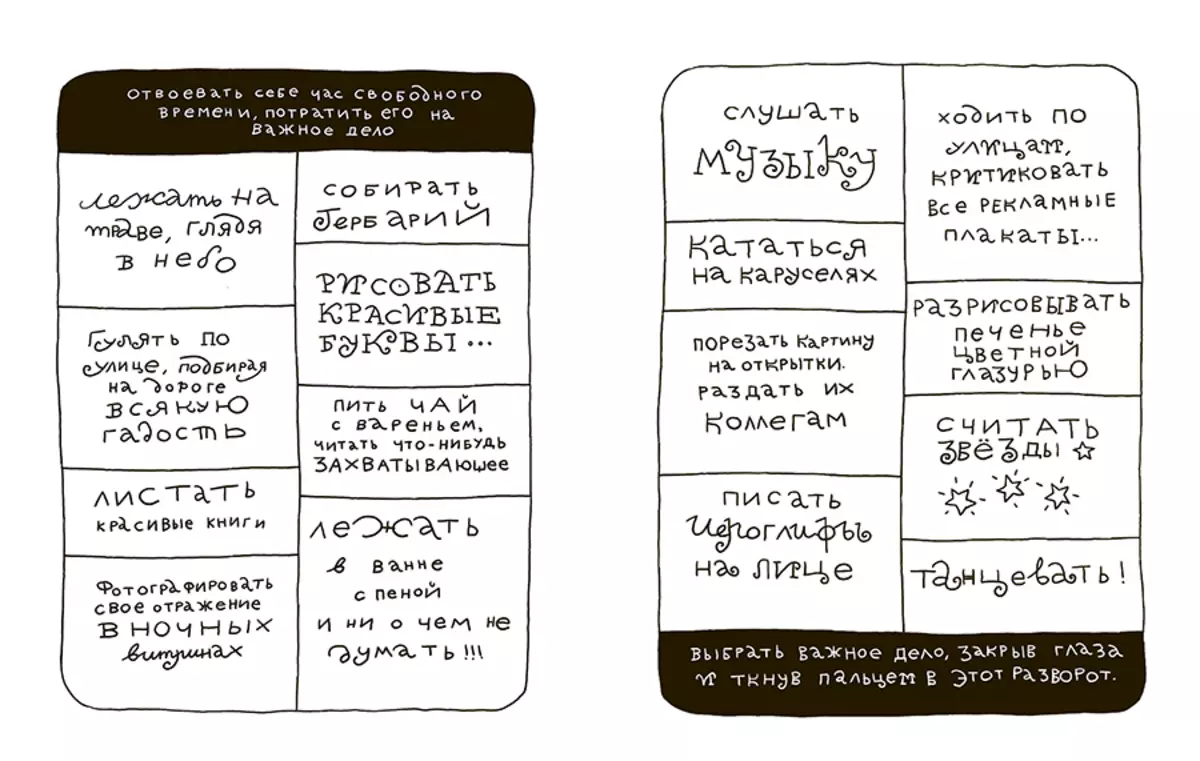 Отвоевать себе час свободного
времени, потратить его на
важное дело
лежать на
траве, глядя
в небо
Гулять по
улице, подбирая
на дороге
всякую
гадость
листать
красивые книги
Фотографировать
свое отражение
в ночных
витринах
собирать
гербарий
рисовать
красивые
буквы...
пить чай
с вареньем,
читать что-нибудь
захватывающее
лежать
в ванне
с пеной
и ни о чем не
думать!!!
слушать
музыку
кататься
на каруселях
порезать картину
на открытки.
раздать их
коллегам
писать
иероглифы
на лице
ходить по
улицам,
критиковать
все рекламные
плакаты...
разрисовывать
печенье
цветной
глазурью
считать
звёзды
танцевать!
выбрать важное дело, закрыв глаза
и ткнув пальцем в этот разворот.